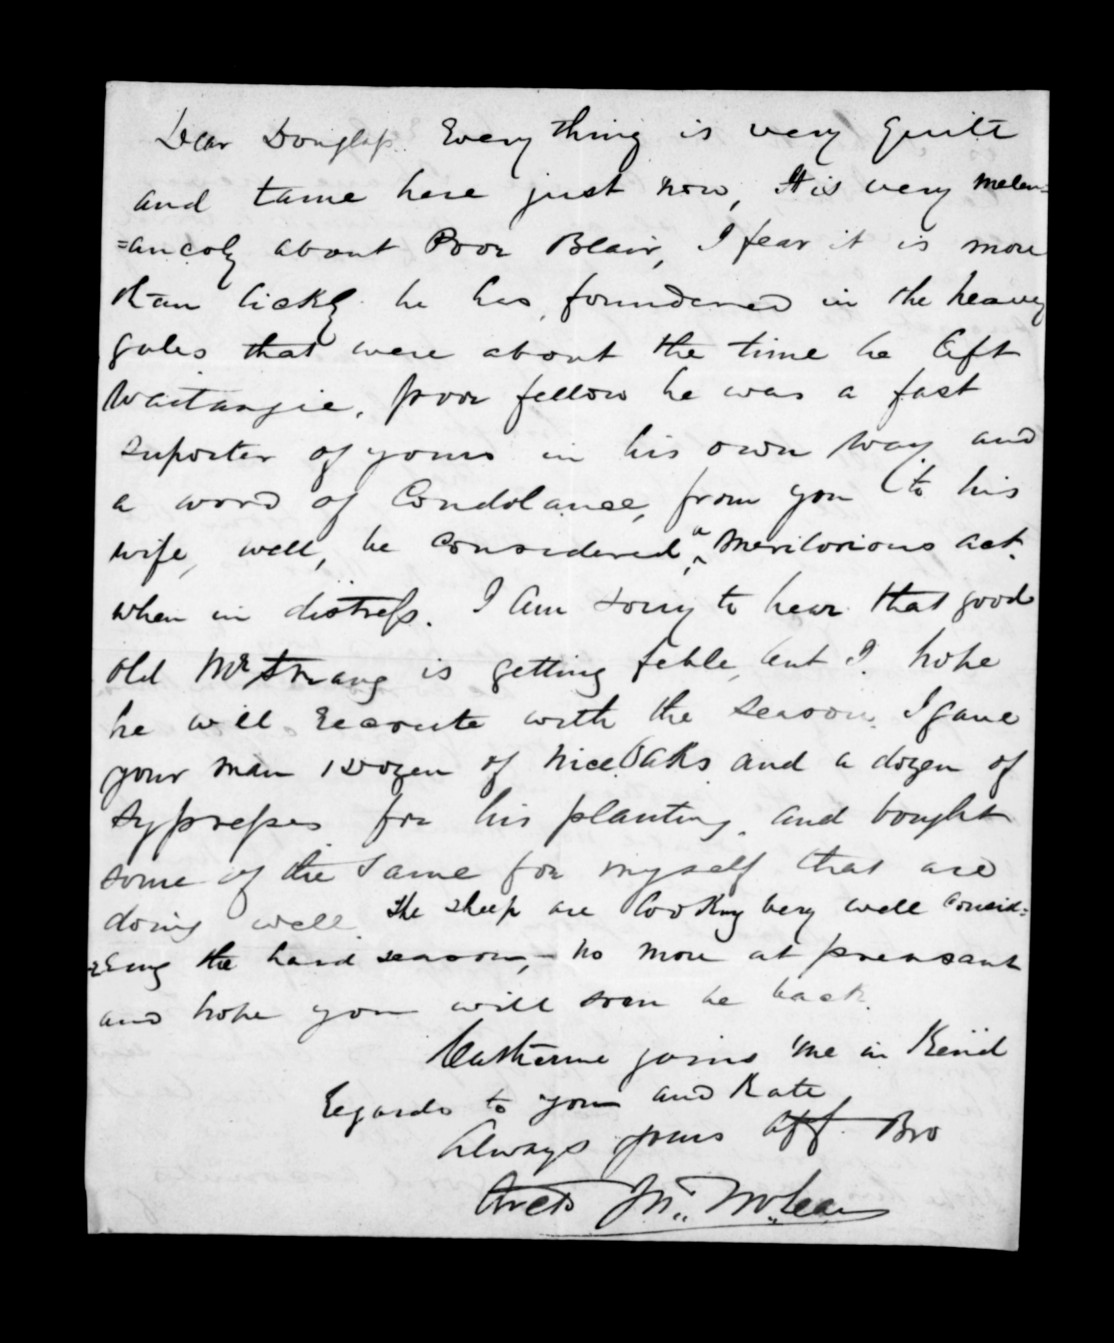 Dear Douglass Every thing is very quite
and tame here just now, It is very melen=
=ancoly about Poor Blair, I fear it is more
than lickly he has foundered in the heavey
gales that were about the time he left
Waitangie, poor fellow he was a fast
suporter of yours in his own way and
a word of Condolance, from you to his
wife, well, be considered a Meritorious act.
when in distress. I am sorry to hear that good
old Mr Strang is getting feble, but I hope
he will Recruite with the season. I gave
your man 1 Dozen of nice Oaks and a dozen of
Sypresses for his planting, and bought
some of the same for myself that are
doing well The sheep are looking very well Consid=
=ering the hard season, - no more at preasant
and hope you will soon be back.
Catherine joins me in Kind
Regards to you and Kate
Always yours aff. Bro
Archd Jn. McLean